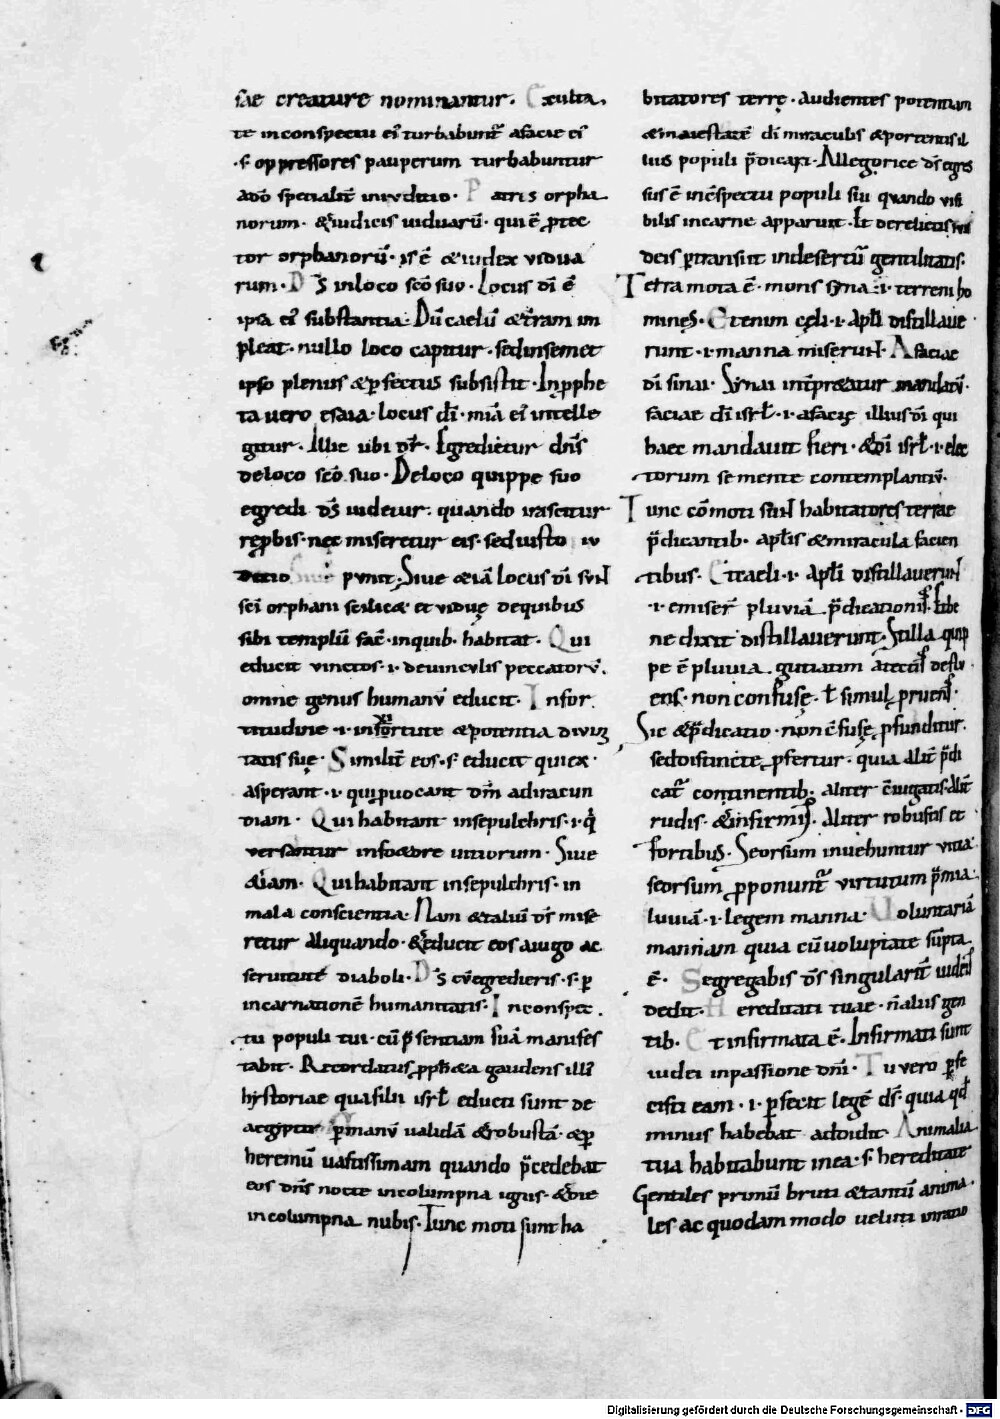 sae creature nominantur. Exulta,
te in conspectu ei' turbabunt᷑ a facie ei'
.s. oppressores pauperum turbabuntur
ado specialit̄ in ivditio. Patris orpha
norum. & iudicis uiduarū. qui ē ꝓtec
tor orphanorū. is ē & iudex vidua
rum. Ds̄ in loco sc̄o suo. Locus dī ē
ipsa ei' substantia. Dū caelū & t̄ram im
pleat. nullo loco capitur. sed in semet
ipso plenus & ꝑfectus subsistit. In ꝓphe
ta uero esaia. locus dī. mīa ei' intelle
gitur. Illic ubi dr̄. Egredietur dn̄s
de loco sc̄o suo. De loco quippe suo
egredi ds̄ uidetur. quando irascitur
reꝓbis. nec miseretur eis. sed iusto iu
ditio punit. Siue & iā locus dī suɴ
sc̄i orphani scilic& et viduę de quibus
sibi templū fac̄. in quib. habitat. Qui
educit vinctos .i. de uinculis peccatorv̄.
omne genus humanv̄ educit. In for
titudine .i. in fortitute & potentia divi
tatis suę. Similit̄ eos .s. educit qui ex
asperant .i. qui ꝓuocant dm̄ ad iracun
diam. Qui habitant in sepulchris .i. q̄
versantur in fo&ore uitiorum. Siue
&iam. Qui habitant in sepulchris. in
mala conscientia. Nam & taliū ds̄ mise
retur aliquando. & educit eos a iugo ac
seruitutē diaboli. Ds̄ cv̄ egredieris .s. ꝑ
incarnationē humanitatis. In conspec
tu populi tui. cū p̄sentiam suā manifes
tabit. Recordatus ꝓph&a gaudens illi'
hystoriae qua filii isrl̄ educti sunt de
aegiptu ꝑ manv̄ validā & robustā. & ꝑ
heremū uastissimam quando p̄cedebat
eos dn̄s nocte in columpna ignis. & die
in columpna nubis. Tunc moti sunt ha
bitatores terrę. audientes potentiam
& maiestatē dī miraculis & portentis il
lius populi p̄dicari. Allegorice ds̄ egres
sus ē in c̄spectu populi sui quando visi
bilis in carne apparuit. Et derelictis iu
deis ꝑtransiit in desertū gentilitatis.
Terra mota ē. mons syna .i. terreni ho
minęs. Etenim cęli .i. apl̄i distillaue
runt .i. manna miseruɴ. A faciae
dī sinai. Synai intp̄r&atur mandatū.
faciae dī isrl̄ .i. a facię illius dī qui
haec mandauit fieri. & dī isrl̄ .i. elec
torum se mente contemplantiū.
Tunc cōmoti suɴ habitatores terrae
p̄dicantib. apl̄is & miracula facien
tibus. Et caeli .i. apl̄i distillaveruɴ
.i. emiser̄ pluviā p̄dicationis. Et be
ne dixit distillaverunt. Stilla quip
pe ē pluuia guttatim a tectis deflu
ens. non confusę. t̄ simul pruens.
Sic & p̄dicatio. non c̄fusę ꝓfunditur.
sed distincte ꝓfertur. quia alit̄ p̄di
cat᷑ continentib; aliter c̄iugatis. alit̄
rudis. & infirmis. aliter robustis et
fortibus. Seorsum inuehuntur vitia
seorsum ꝓponunt᷑ virtutum p̄mia.
luuiā .i. legem manna. Uoluntariā
mannam quia cū uoluptate sūpta
ē. Segregabis ds̄ singularit̄ iudeis
dedit. Hereditati tuae. n̄ aliis gen
tib. Et infirmata ē. Infirmati sunt
iudei in passione dn̄i. Tu vero ꝑfe
cisti eam .i. ꝑfecit legē ds̄. quia qd̄
minus habebat addidit. Animalia
tua habitabunt in ea .s. hereditate
Gentiles primū bruti & tantū anima
les ac quodam modo ueluti irratio
Digitalisierung gefördert durch die Deutsche Forschungsgemeinschaft - DFG